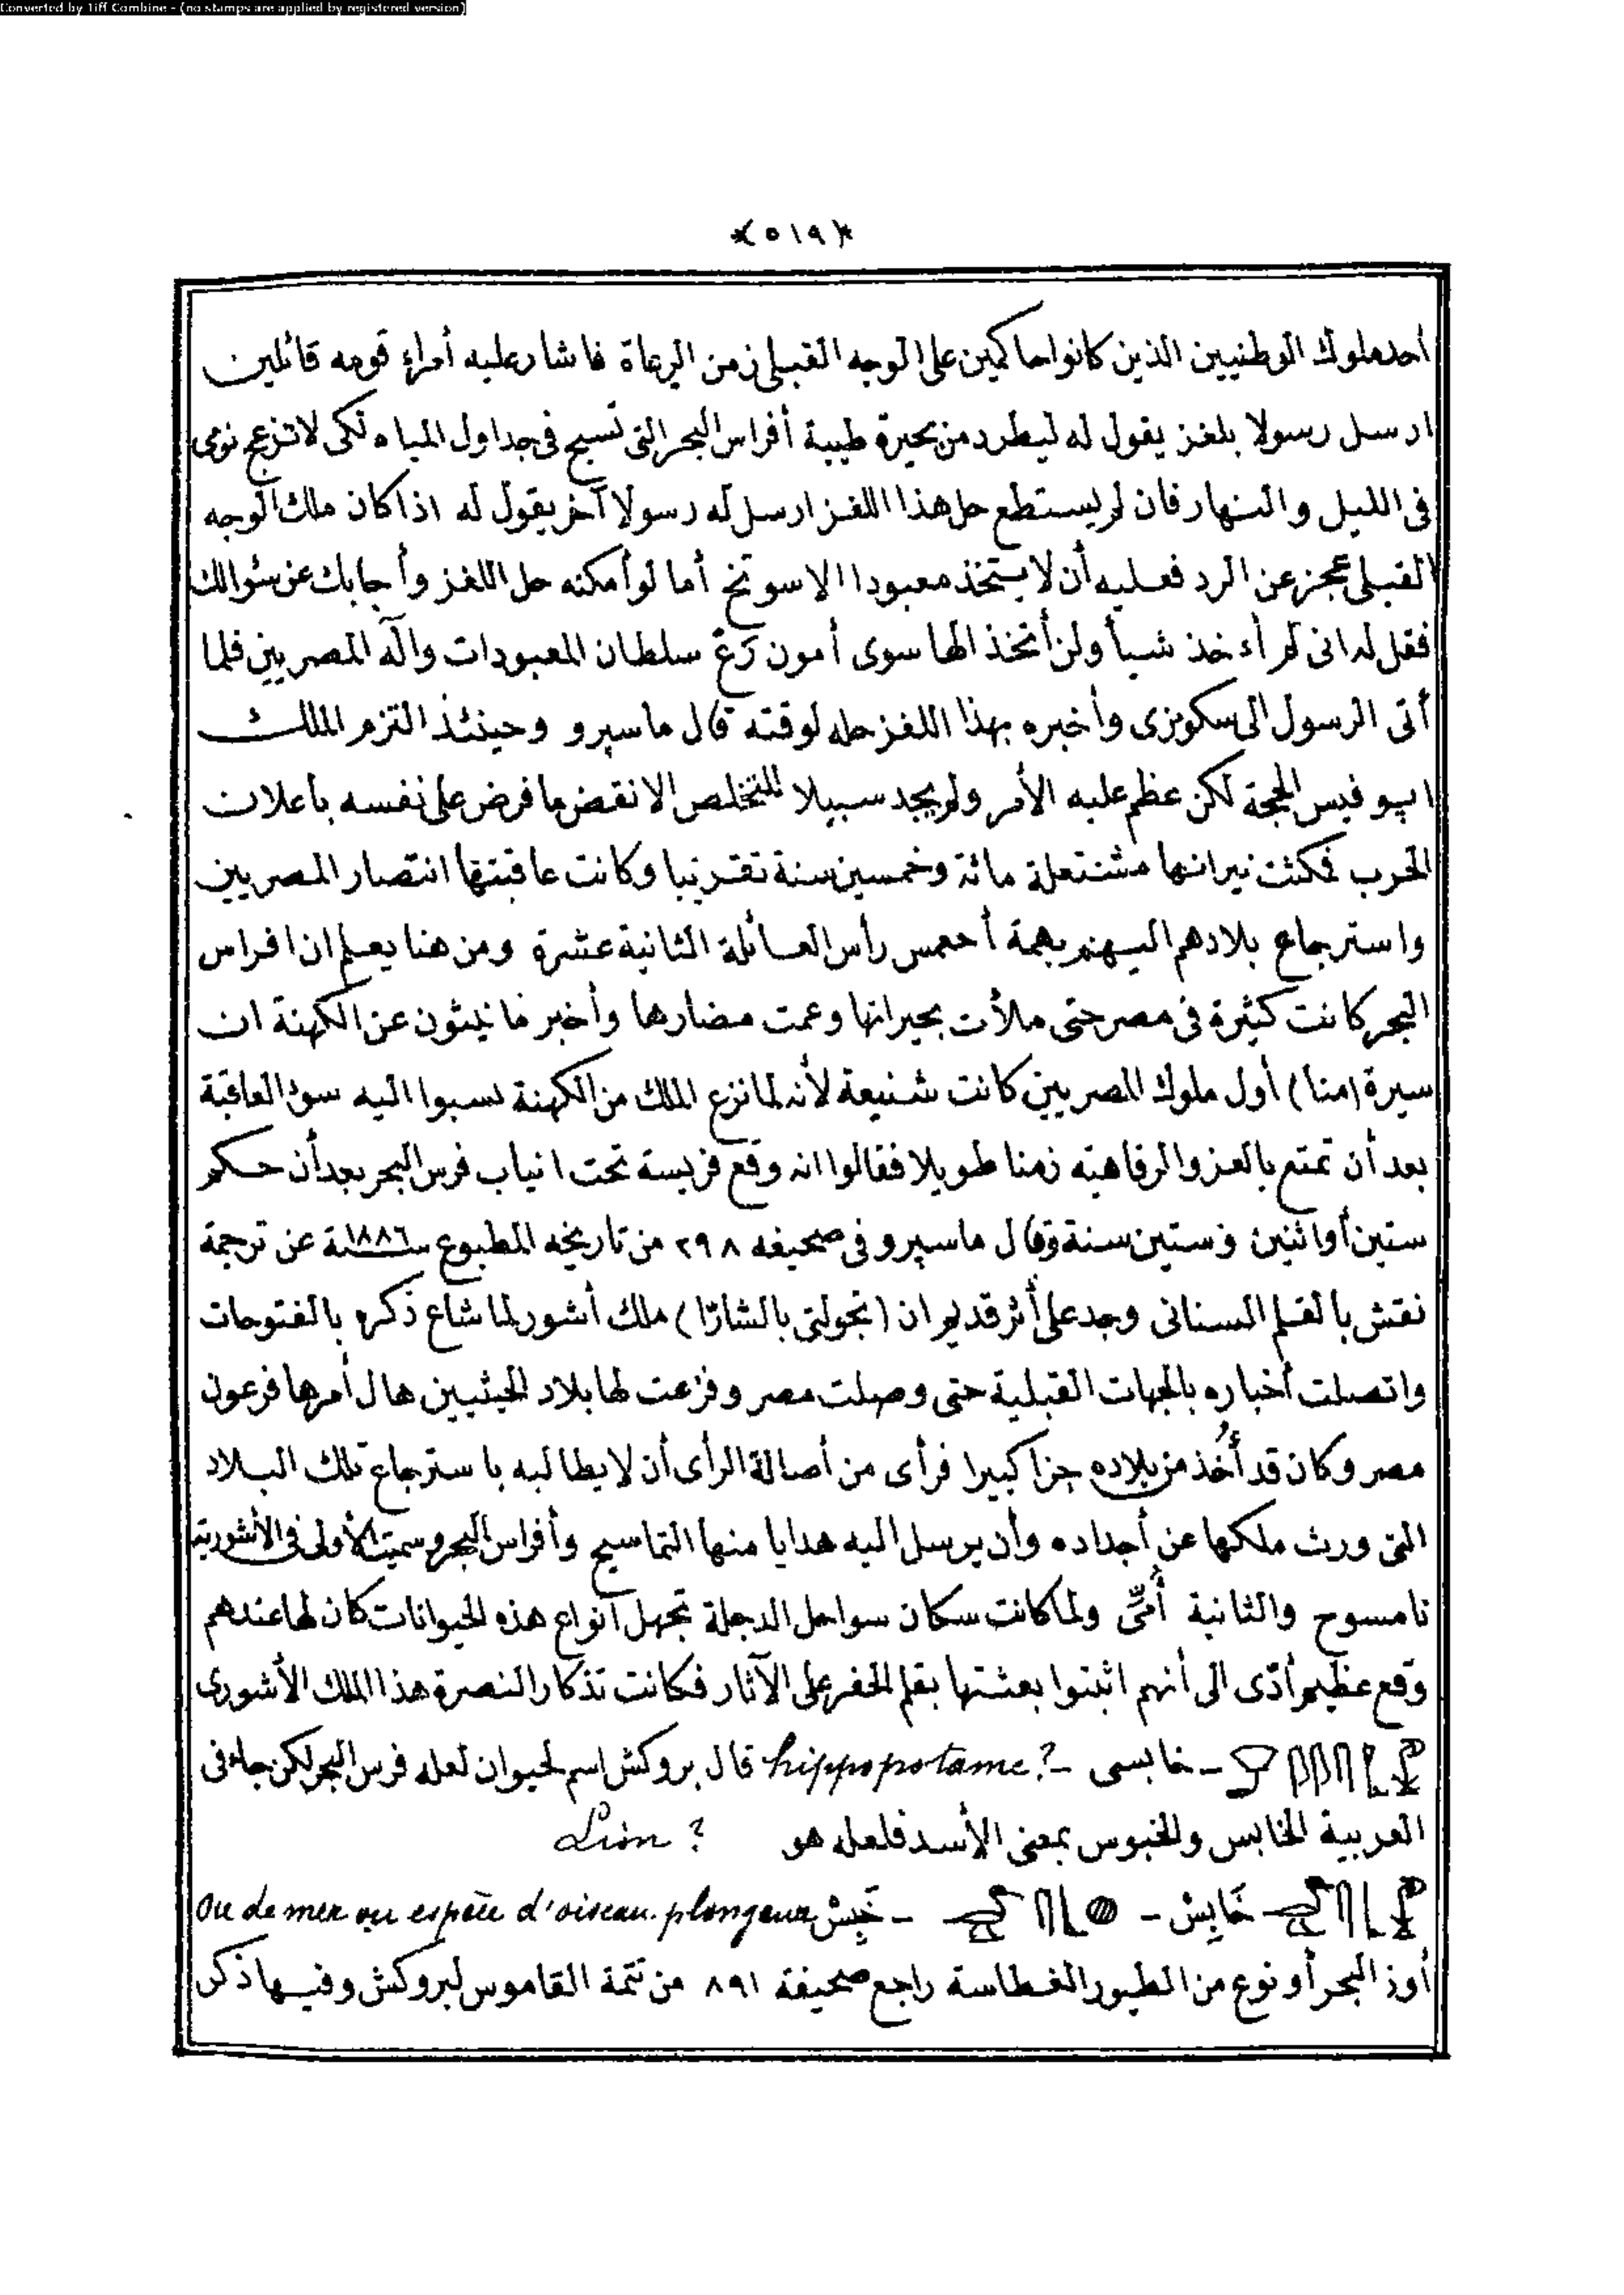 Converted by Tiff Combine - (no stamps are applied by registered version)
*(٥١٩)*
أحد ملوك الوطنيين الذين كانوا حاكمين على الوجه القبلى زمن الرعاة فاشار عليه أمراء قومه قائلين
ارسل رسولا بلغز يقول له ليطرد من بحيرة طيبة أفراس البحر التى تسبح فى جداول المياه لكى لا تزعج نومى
فى الليل والنهار فان لم يستطع حل هذا اللغز ارسل له رسولا آخر يقول له اذا كان ملك الوجه
القبلى عجز عن الرد فعليه أن لا يتخذ معبودا الا سوتخ أما لو أمكنه حل اللغز وأجابك عن سؤالك
فقل له انى لم أءخذ شيأ ولن أتخذ الها سوى أمون رع سلطان المعبودات وآله المصريين فلما
أتى الرسول الى سكونزى وأخبره بهذا اللغز حله لوقته قال ماسپرو وحينئذ التزم الملك
اپوفيس الحجة لكن عظم عليه الأمر ولم يجد سبيلا للتخلص الا نقض ما فرض على نفسه باعلان
الحرب فمكثت نيرانها مشتعلة مائة وخمسين سنة تقريبا وكانت عاقبتها انتصار المصريين
واسترجاع بلادهم اليهم بهمة أحعمس رأس العائلة الثانية عشرة ومن هنا يعلم ان افراس
البحر كانت كثيرة فى مصر حتى ملأت بحيراتها وعمت مضارها وأخبر مانيثون عن الكهنة ان
سيرة (منا) أول ملوك المصريين كانت شنيعة لأنه لما نزع الملك من الكهنة نسبوا اليه سوء العاقبة
بعد أن تمتع بالعز والرفاهته زمنا طويلا فقالوا انه وقع فريسة تحت انياب فرس البحر بعد أن حكم
ستين أو اثنين وستين سنة وقال ماسپرو فى صحيفه ٢٩٨ من تاريخه المطبوع سنة ١٨٨٦ عن ترجمة
نقش بالقلم السنانى وجد على أثر قديم ان (تجولتى بالشارّا) ملك أشور لما شاع ذكره بالفتوحات
واتصلت أخباره بالجهات القبلية حتى وصلت مصر وفزعت لها بلاد الحيثيين هال أمرها فرعون
مصر وكان قد أُخذ من بلاده جزأ كبيرا فرأى من أصالة الرأى أن لا يطالبه باسترجاع تلك البلاد
التى ورث ملكها عن أجداده وأن يرسل اليه هدايا منها التماسيح وأفراس البحر وسميت الأولى فى الأشورية
نامسوح والثانية أُمىّ ولما كانت سكان سواحل الدجلة تجهل أنواع هذه الحيوانات كان لها عندهم
وقع عظيم أدّى الى أنهم اثبتوا بعثتها بقلم الحفر على الآثار فكانت تذكارا لنصرة هذا الملك الأشورى
- خابسى - hippopotame? قال بروكش اسم لحيوان لعله فرس البحر لكن جاء فى
العربية الخابس والخبوس بمعنى الأسد فلعله هو Lion ?
خَابِسْ - - خَبِسْ Ou de mer ou espèce d'oiseau plongeur
أوز البحر أو نوع من الطيور الغطاسة راجع صحيفة ٨٩١ من تتمة القاموس لبروكش وفيها ذكر